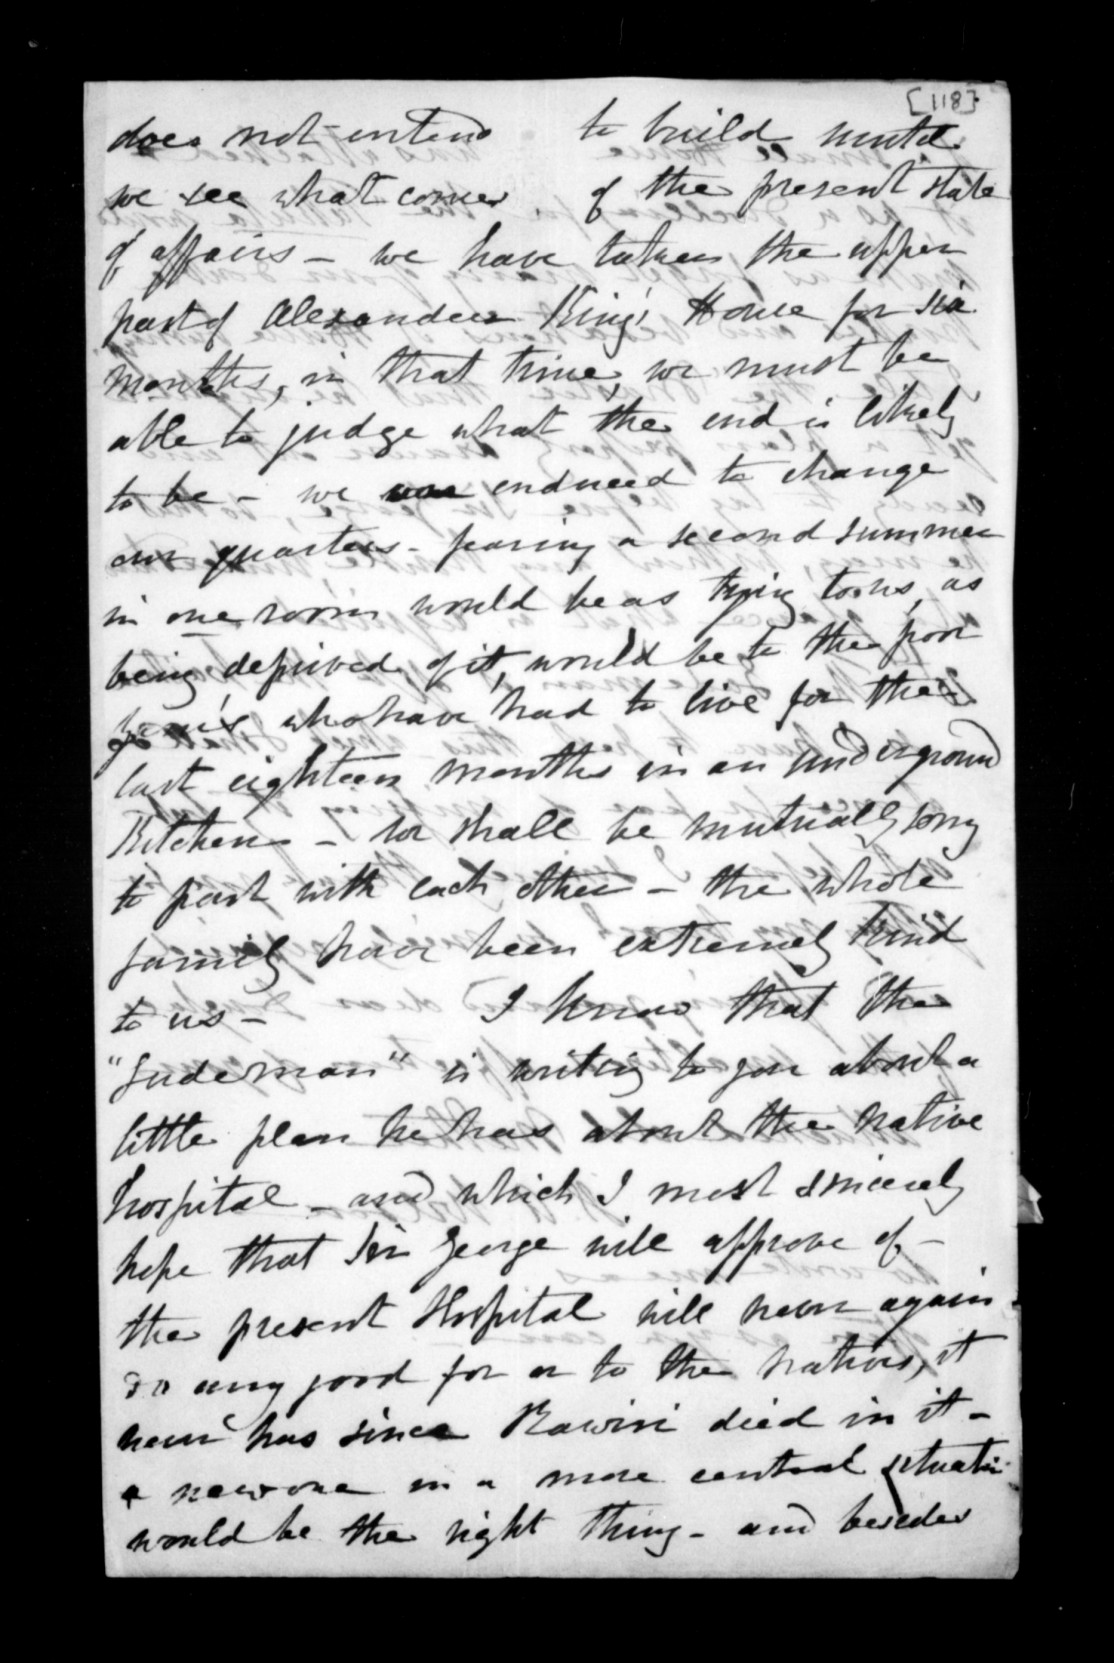 [118]
does not intend to build until
we see what comes of the present state
of affairs – we have taken the upper
part of Alexander King's House for six
months, in that time, we must be
able to judge what the end is likely
to be – we enduced to change
our quarters – fearing a second summer
in one room would be as trying to us, as
being deprived of it, would be to the poor
who have had to live for the
last eighteen months in an underground
Kitchen – we shall be mutually sorry
to part with each other – the whole
family have been extremely kind
to us – I know that the
"Gudeman" is writing to you about a
little plan he has about the native
hospital – and which I most sincerely
hope that Sir George will approve of –
the present Hospital will never again
do any good for or to the natives, it
never has since Rawiri died in it –
a new one in a more central situation
would be the right thing – and besides